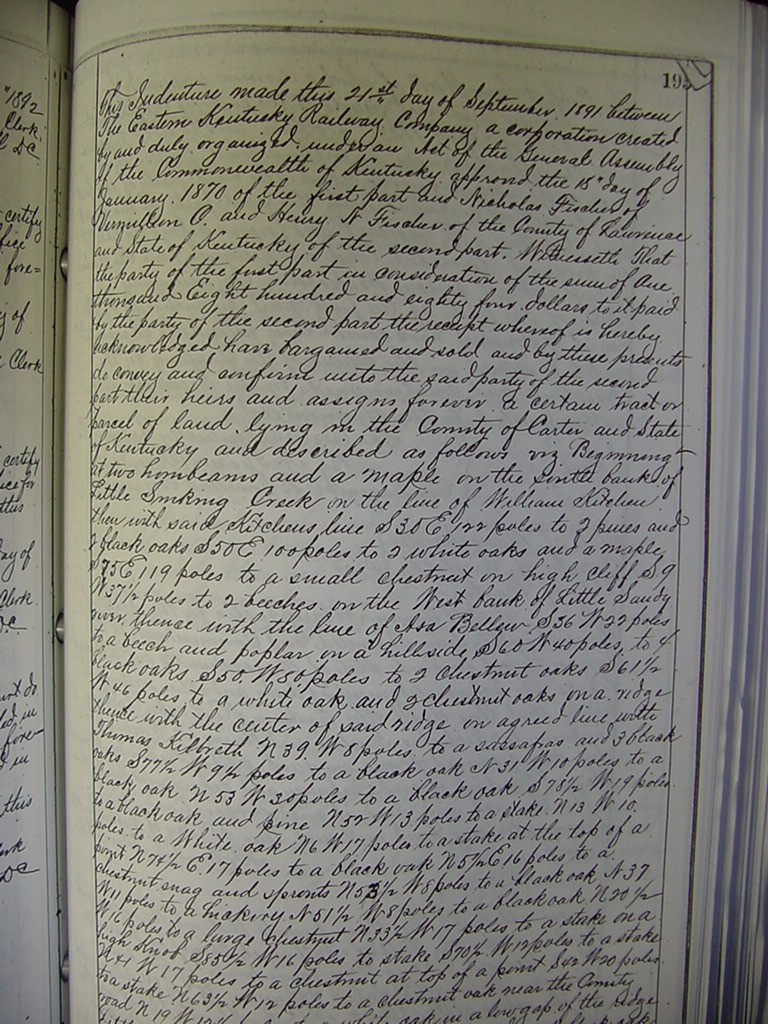 195
This Indenture made this 21st day of September 1891 between
The Eastern Kentucky Railway Company a corporation created
by and duly organized under an Act of the General Assembly
of the Commonwealth of Kentucky approved the 18" day of
January 1870 of the first part and Nicholas Fischer of
Vermillion O. and Henry N Fischer of the County of Lawrence
and State of Kentucky of the second part. Witnesseth That
the party of the first part in consideration of the sum of One
thousand Eight hundred and eighty four dollars to it paid
by the party of the second part the receipt whereof is hereby
acknowledged, have bargained and sold and by these presents
do convey and confirm unto the said party of the second
part their heirs and assigns forever a certain tract or
parcel of land, lying in the County of Carter and State
of Kentucky and described as follows viz Beginning
at two hornbeams and a maple on the south bank of
Little Smoking Creek in the line of William Kitchen
then with said Kitchens line S30E 122 poles to 2 pines and
2 black oaks S50E 100 poles to 2 white oaks and a maple
S75E 119 poles to a small chestnut on high cliff S9
W37½ poles to 2 beeches on the West bank of Little Sandy
river thence with the line of Asa Bellew S36 W22 poles
to a beech and poplar on a hillside S60 W40 poles to 4
black oaks S50 W80 poles to 2 chestnut oaks S61½
W46 poles to a white oak and 2 chestnut oaks on a ridge
thence with the center of said ridge on agreed line with
Thomas Kilbreth N39 W8 poles to a sassafras and 3 black
oaks S77½ W9½ poles to a black oak N31 W10 poles to a
black oak N53 W20 poles to a black oak S78½ W19 poles
to a black oak and pine N52 W13 poles to a stake N13 W10
poles to a White oak N6 W17 poles to a stake at the top of a
point N74½ E17 poles to a black oak N5½E16 poles to a
chestnut snag and sprouts N53½ W8 poles to a black oak N37
W11 poles to a hickory N51½ W8 poles to a black oak N20½
W16 poles to a large chestnut N33½ W17 poles to a stake on a
high Knob S85½ W16 poles to stake S70½ W12 poles to a stake
N41 W17 poles to a chestnut at top of a point S42 W20 poles
to a stake N63½ W12 poles to a chestnut oak near the County
road N19 W12½ white oak in a low gap of the ridge
"1892
Clerk
DC
certify
fore=
of
Clerk
certify
this
day of
Clerk
D.C.
in
fore
in
this
DC